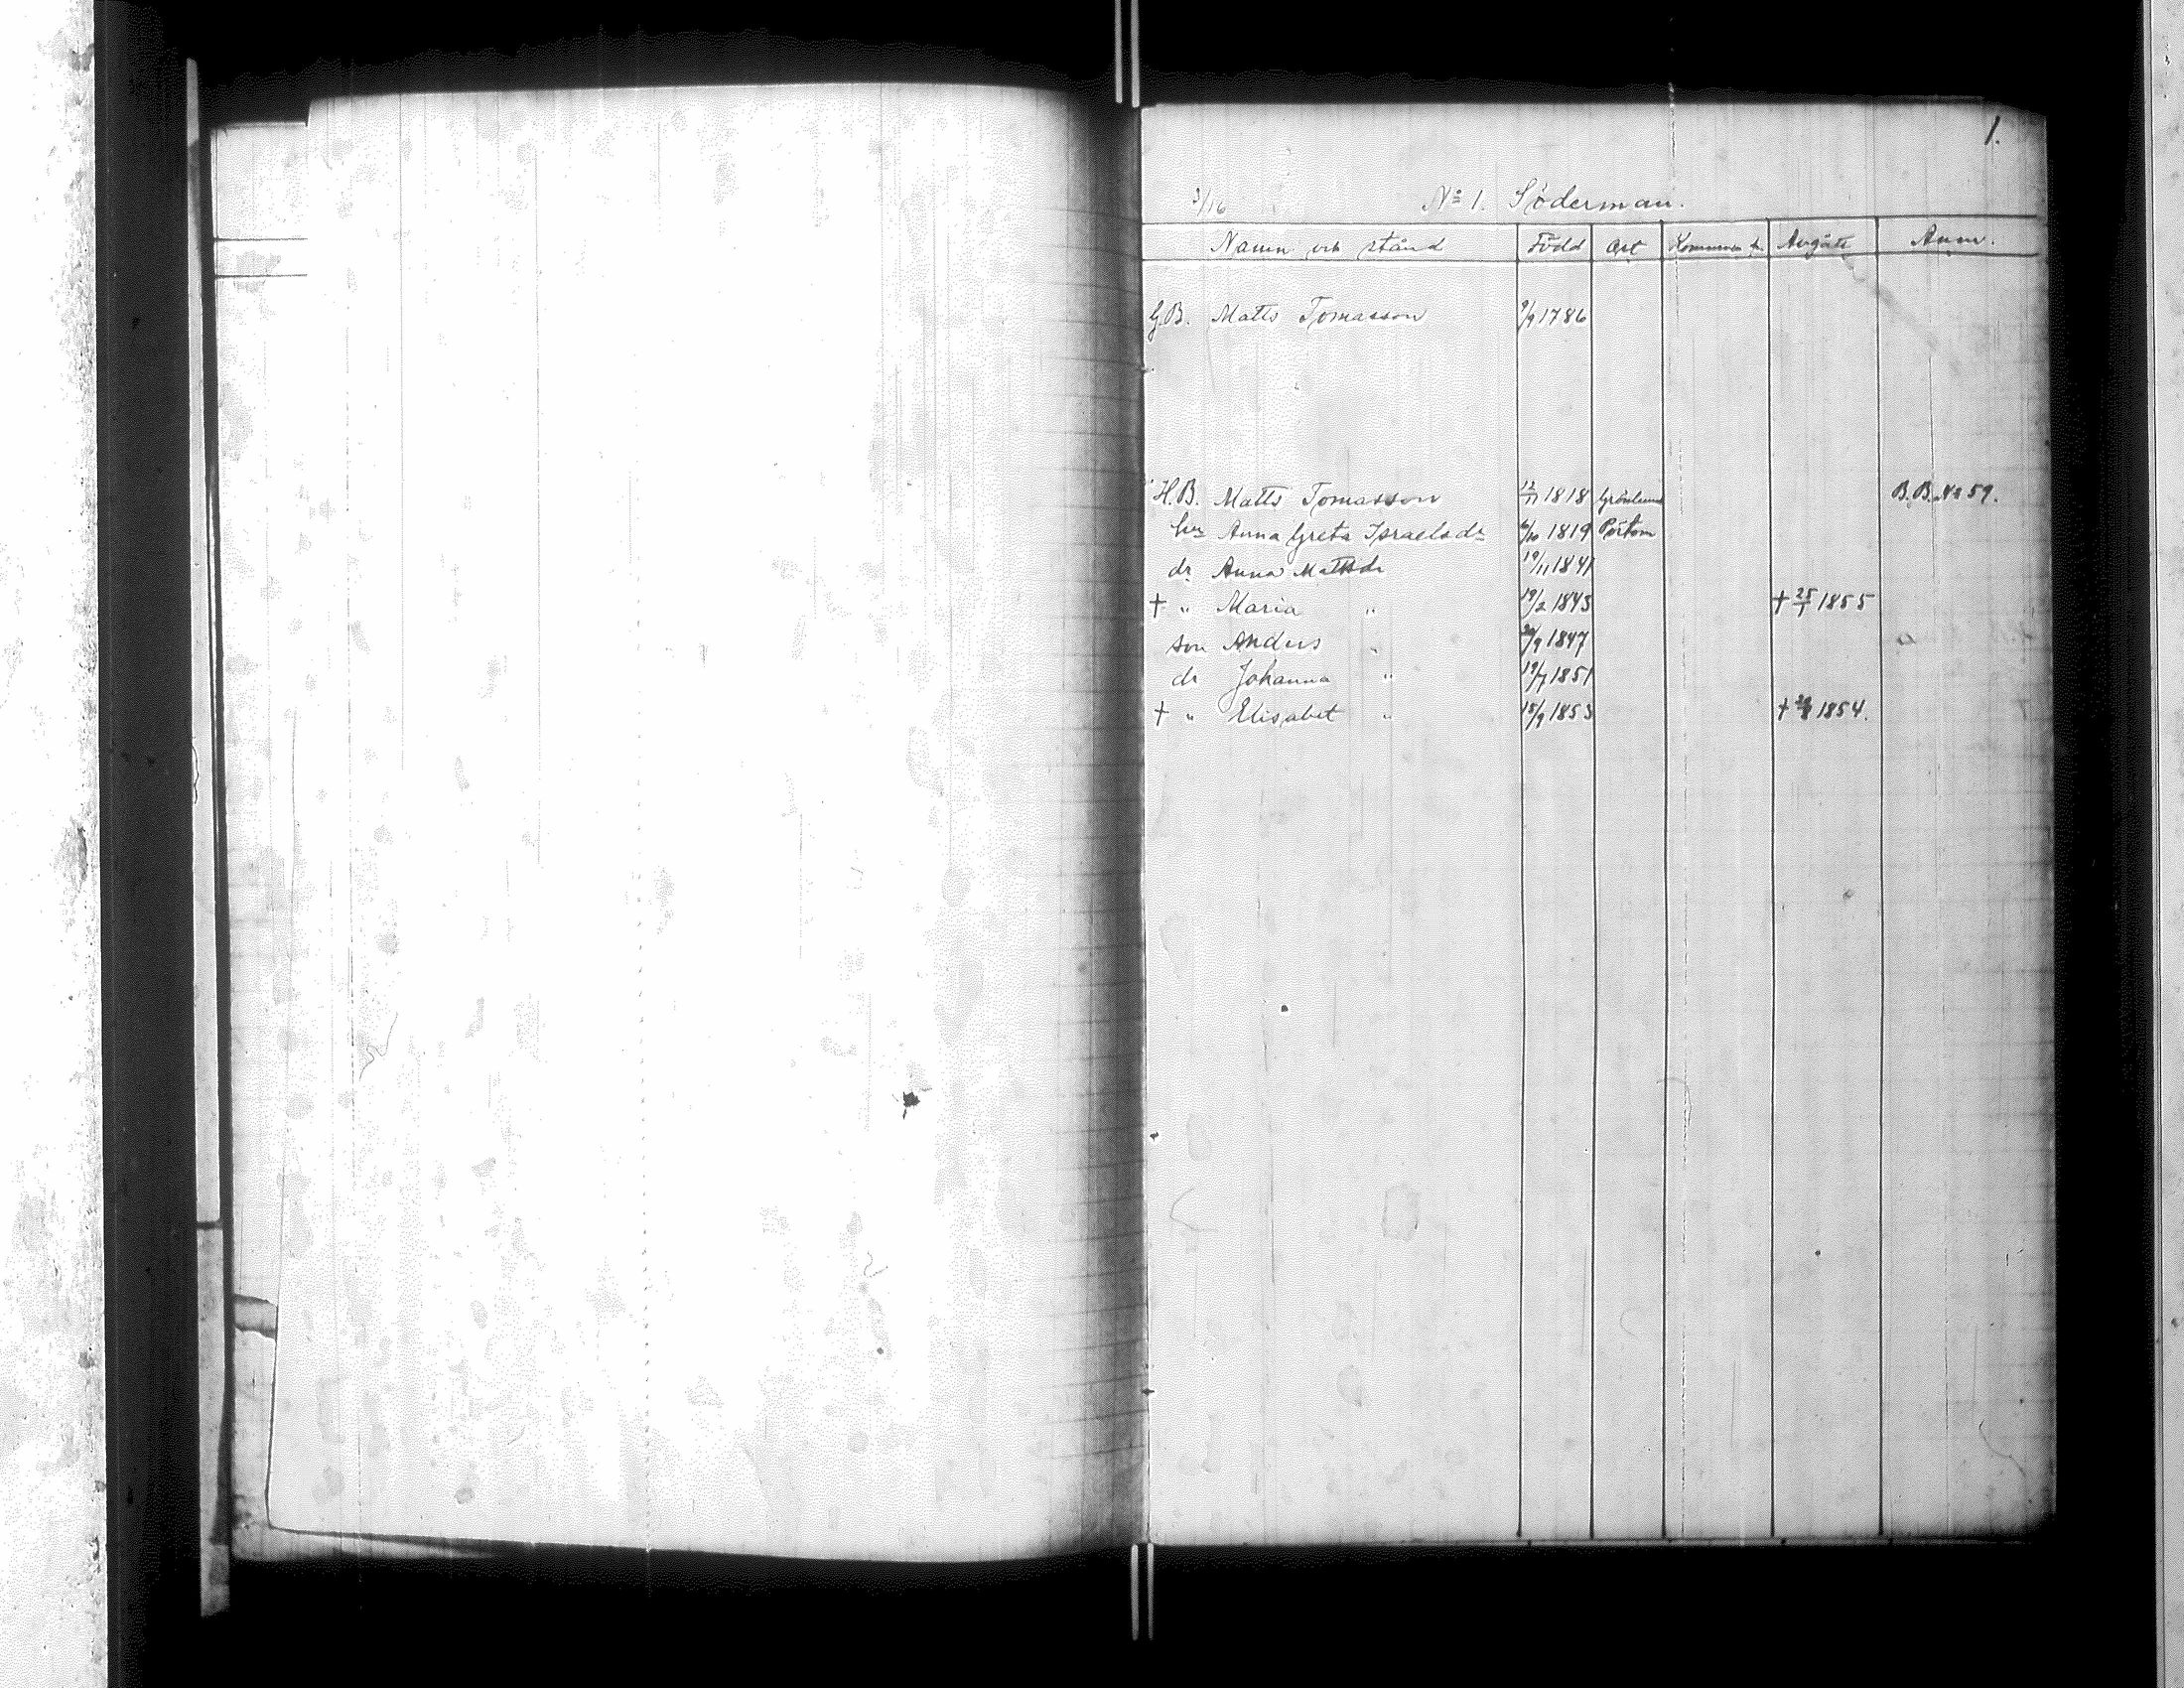 1.
3/16 No 1. Söderman.
Namn och stånd Född Ort Kommen fr. Avgått Anm.
G.B. Matts Tomasson 9/9 1786
H.B. Matts Tomasson 12/11 1818 Grönlund B.B. No 59.
hu Anna Greta Israelsdr 6/10 1819 Pörtom
dr Anna Mattsdr 19/11 1841
† " Maria " 19/2 1845 † 25/1 1855
son Anders " /9 1847
dr Johanna " 19/7 1851
† " Elisabet " 15/9 1853 † 1854.